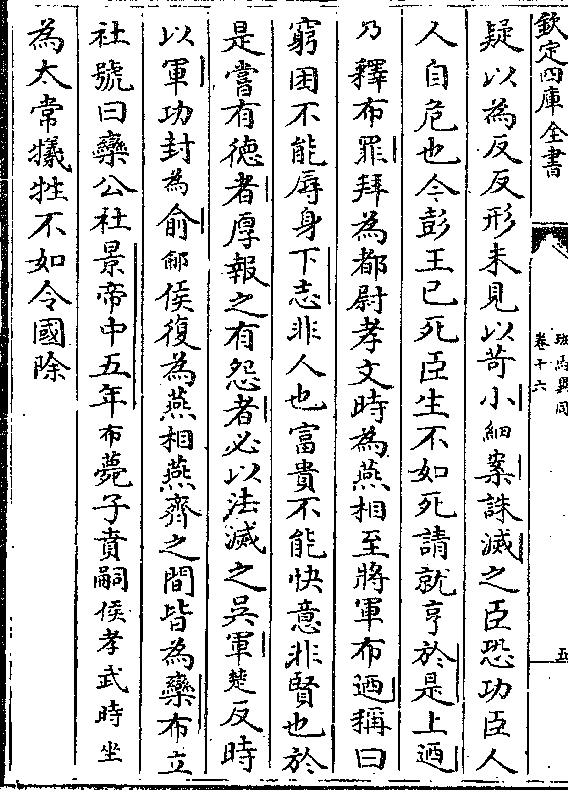 欽定四庫全書
班馬異同
卷十六
五
疑以為反反形未見以苛小細案誅滅之臣恐功臣人
人自危也今彭王已死臣生不如死請就亨於是上迺
乃釋布罪拜為都尉孝文時為燕相至將軍布迺稱曰
窮困不能辱身下志非人也富貴不能快意非賢也於
是嘗有德者厚報之有怨者必以法滅之吳軍楚反時
以軍功封為俞鄃侯復為燕相燕齊之間皆為欒布立
社號曰欒公社景帝中五年布薨子賁嗣侯孝武時坐
為太常犧牲不如令國除